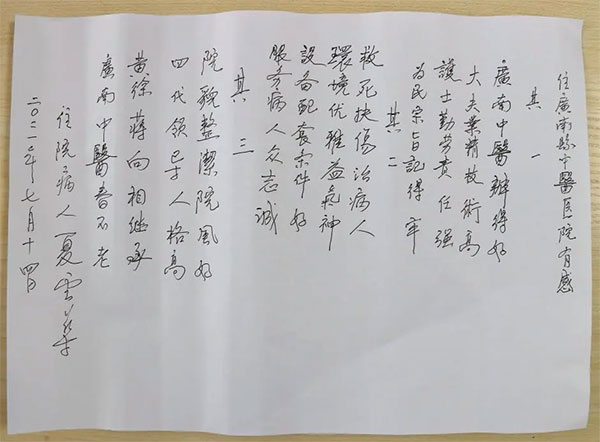 住廣南縣中醫医院有感
其一
廣南中醫辦得好
大夫業精技術高
護士勤劳責任强
为民宗旨記得牢
其二
救死扶傷治病人
環境优雅益氣神
設备配套条件好
服务病人众志誠
其三
院貌整潔院風好
四代领导人格高
黄徐蒋向相继承
廣南中醫春不老
住院病人夏雲华
二〇二二年七月十四日